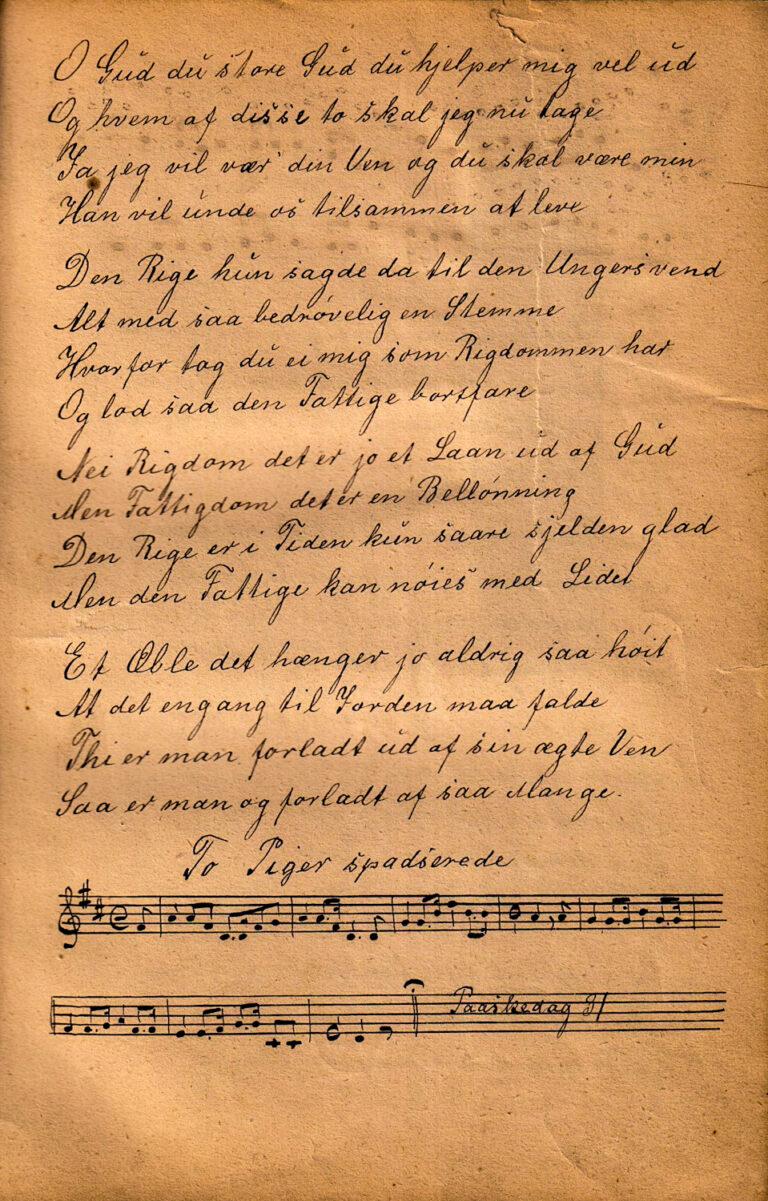 O Gud du store Gud du hjelper mig vel ud
Og hvem af disse to skal jeg nu tage
Ja jeg vil vær' din Ven og du skal være min
Han vil unde os tilsammen at leve
Den Rige hun sagde da til den Ungersvend
Alt med saa bedrøvelig en Stemme
Hvorfor tog du ei mig som Rigdommen har
Og lod saa den Fattige bortfare
Nei Rigdom det er jo et Laan ud af Gud
Men Fattigdom det er en Bellønning
Den Rige er i Tiden kun saare sjelden glad
Men den Fattige kan nøies med Lidet
Et Æble det hænger jo aldrig saa høit
At det engang til Jorden maa falde
Thi er man forladt ud af sin ægte Ven
Saa er man og forladt af saa Mange.
To Piger spadserede
Paaskedag